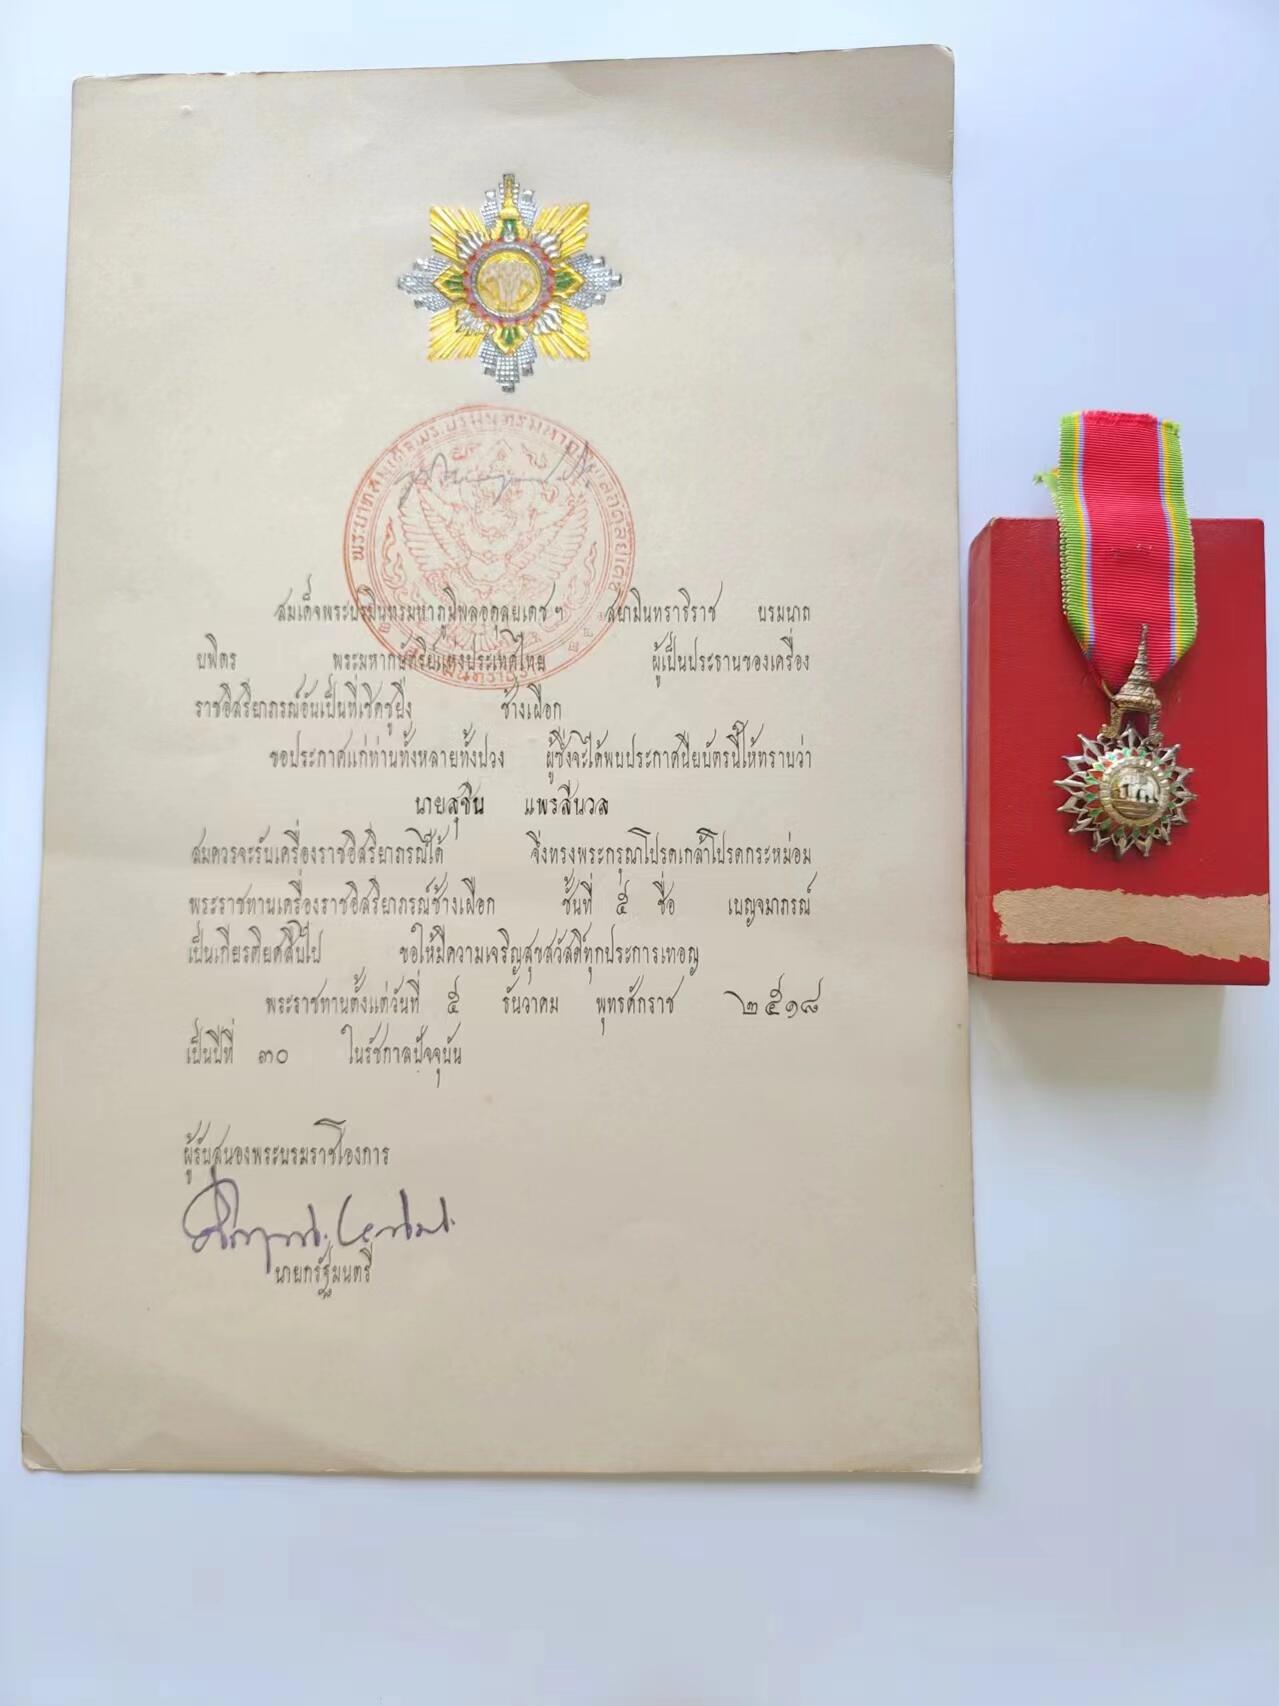 สมเด็จพระปรมินทรมหาภูมิพลอดุลยเดช ฯ สยามินทราธิราช บรมนาถ
บพิตร พระมหากษัตริย์แห่งประเทศไทย ผู้เป็นประธานของเครื่อง
ราชอิสริยาภรณ์อันเป็นที่เชิดชูยิ่ง ช้างเผือก
ขอประกาศแก่ท่านทั้งหลายทั้งปวง ผู้ซึ่งจะได้พบประกาศนียบัตรนี้ให้ทราบว่า
นายสุชิน แพรสีนวล
สมควรจะรับเครื่องราชอิสริยาภรณ์ได้ จึ่งทรงพระกรุณาโปรดเกล้าโปรดกระหม่อม
พระราชทานเครื่องราชอิสริยาภรณ์ช้างเผือก ชั้นที่ ๕ ชื่อ เบญจมาภรณ์
เป็นเกียรติยศสืบไป ขอให้มีความเจริญสุขสวัสดิ์ทุกประการเทอญ
พระราชทานตั้งแต่วันที่ ๕ ธันวาคม พุทธศักราช ๒๕๑๘
เป็นปีที่ ๓๐ ในรัชกาลปัจจุบัน
ผู้รับสนองพระบรมราชโองการ
นายกรัฐมนตรี